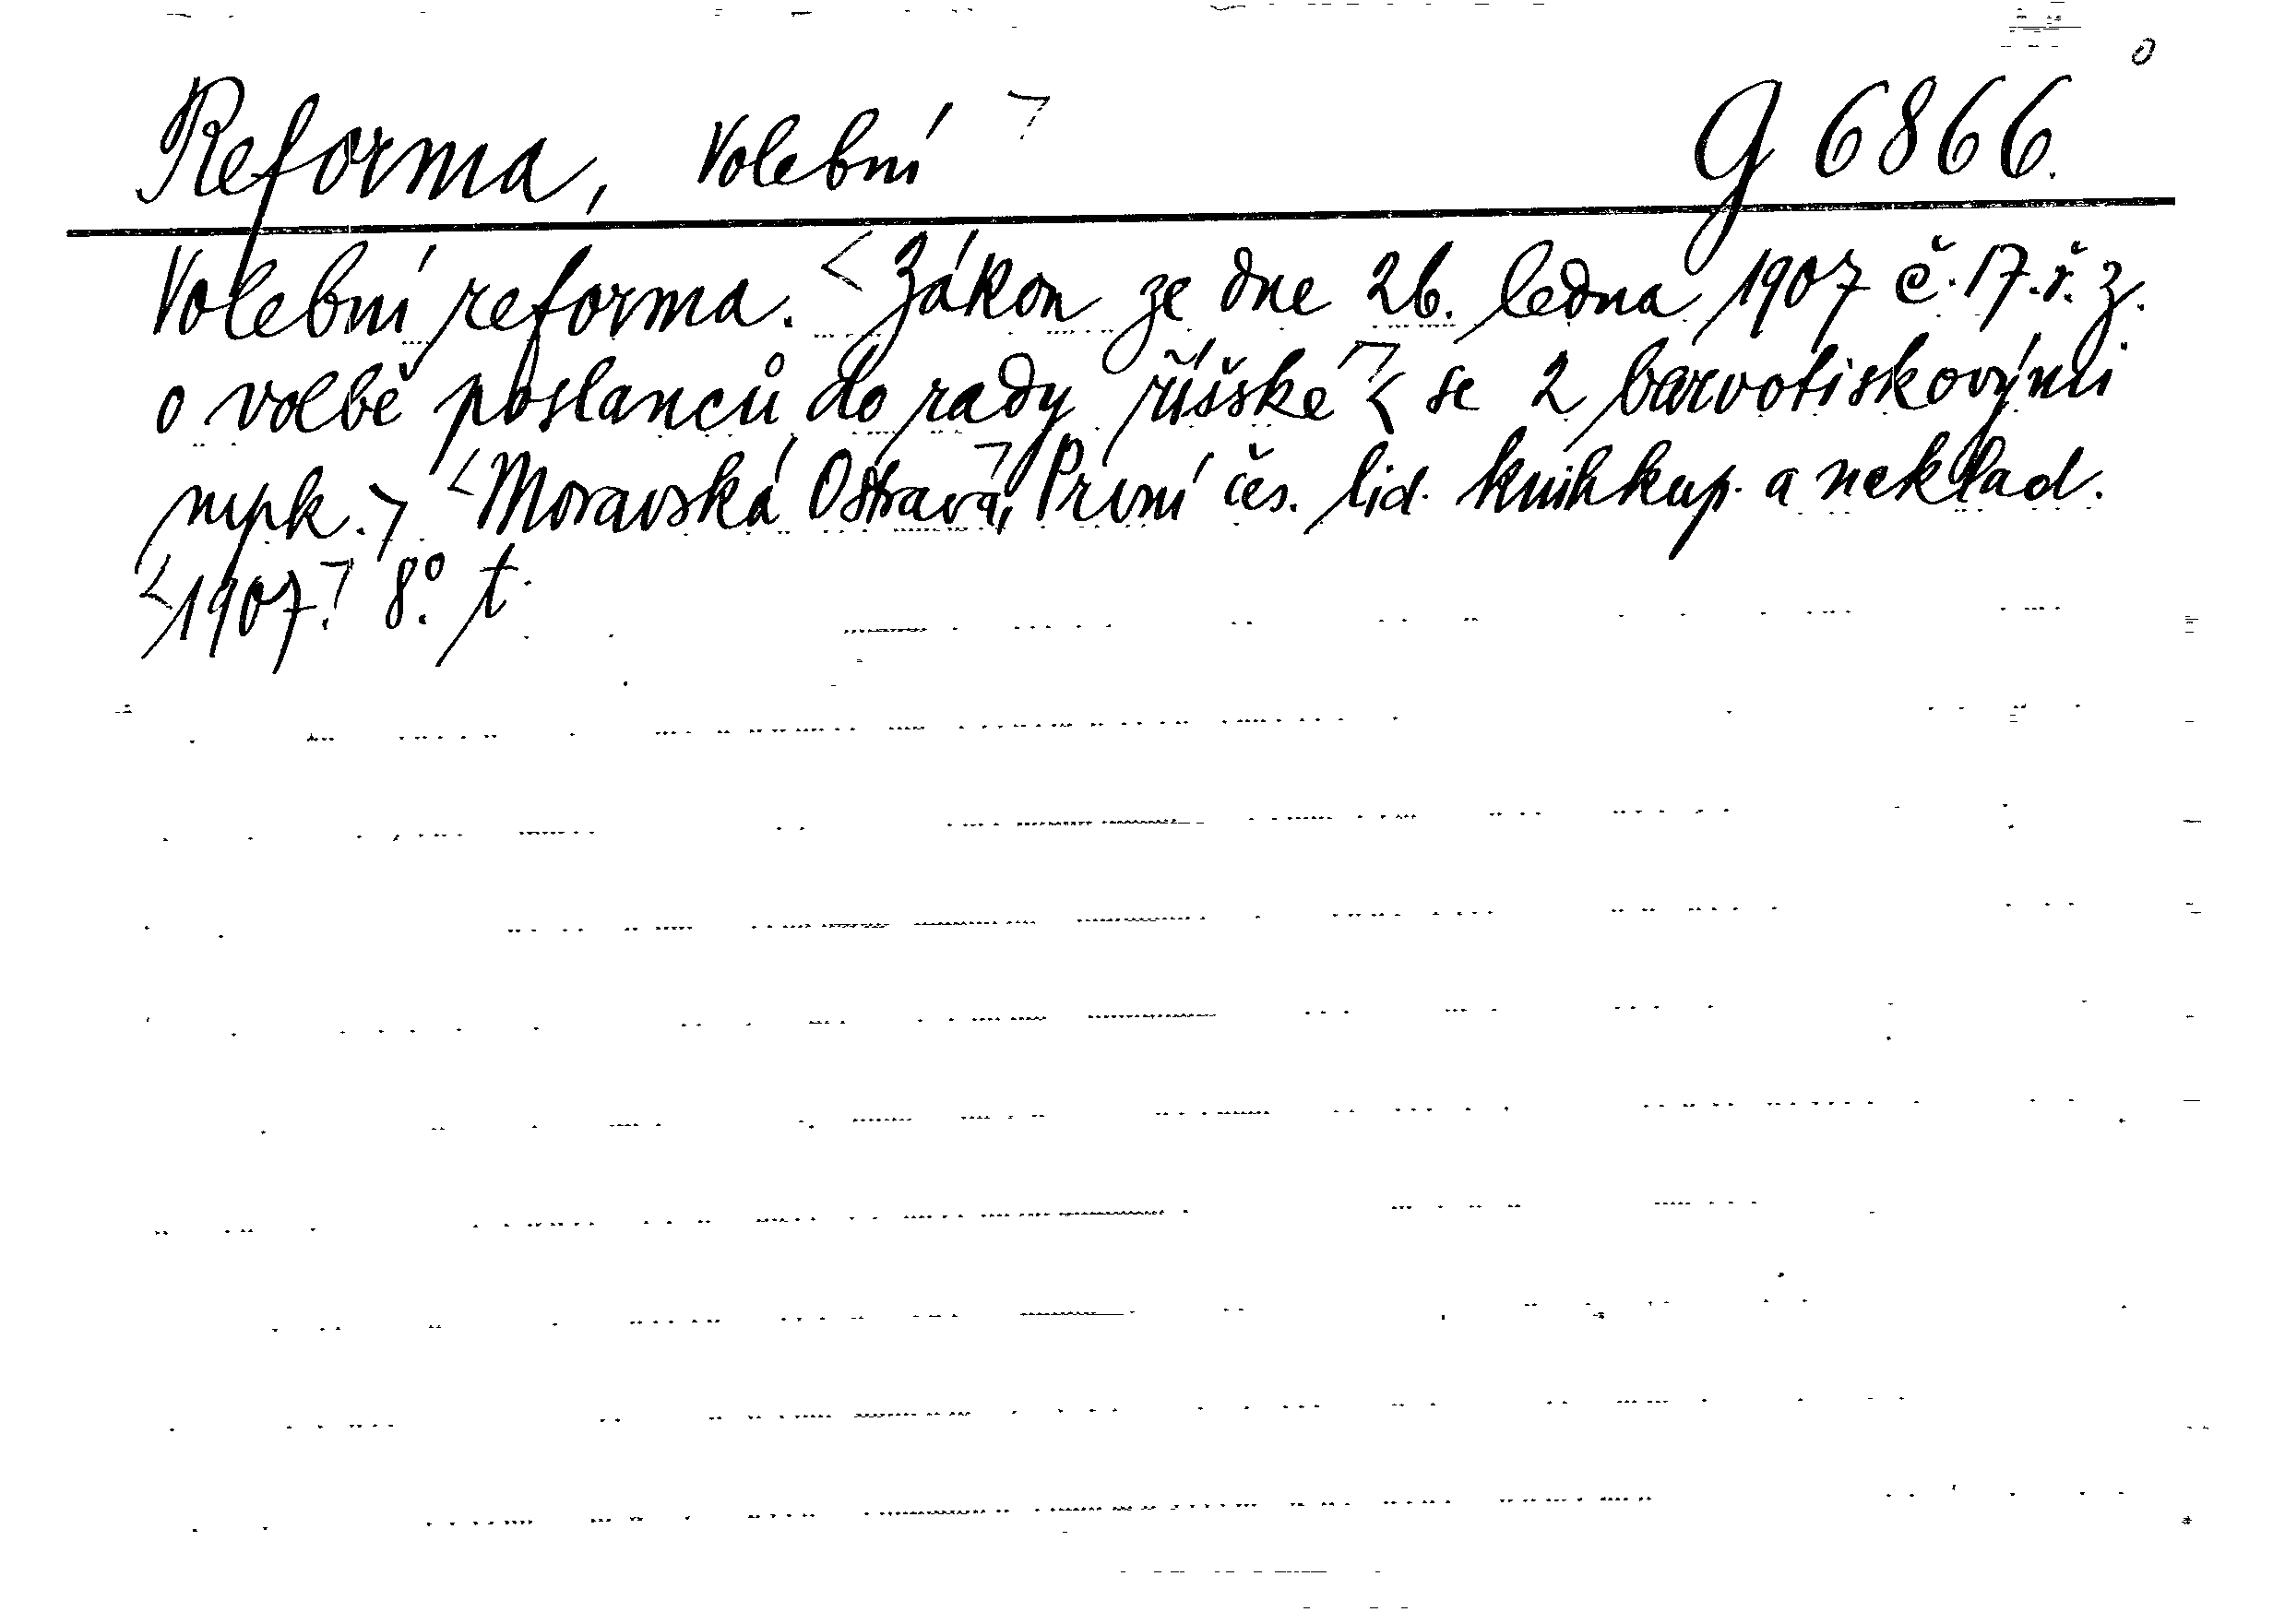 Reforma, Volební G 6866.
Volební reforma. <Zákon ze dne 26. ledna 1907 č. 17. ř. z.
o volbě poslanců do rady říšské> <se 2 barvotiskovými
mpk.> <Moravská Ostrava>, První čes. lid. knihkup. a naklad.
<1907.> 8°. t.